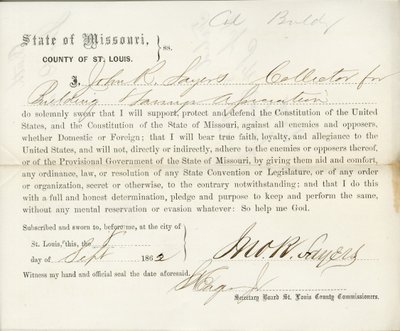 Col
State of Missouri,
COUNTY OF ST. LOUIS. } ss.
I, John R. Sayers Collector for
Building & Savings Association
do solemnly swear that I will support, protect and defend the Constitution of the United
States, and the Constitution of the State of Missouri, against all enemies and opposers,
whether Domestic or Foreign; that I will bear true faith, loyalty, and allegiance to the
United States, and will not, directly or indirectly, adhere to the enemies or opposers thereof,
or of the Provisional Government of the State of Missouri, by giving them aid and comfort,
any ordinance, law, or resolution of any State Convention or Legislature, or of any order
or organization, secret or otherwise, to the contrary notwithstanding; and that I do this
with a full and honest determination, pledge and purpose to keep and perform the same,
without any mental reservation or evasion whatever: So help me God.
Subscribed and sworn to, before me, at the city of
St. Louis, this, the 8
day of Sept 1862
Jno. R. Sayers
Witness my hand and official seal the date aforesaid.
Secretary Board St. Louis County Commissioners.